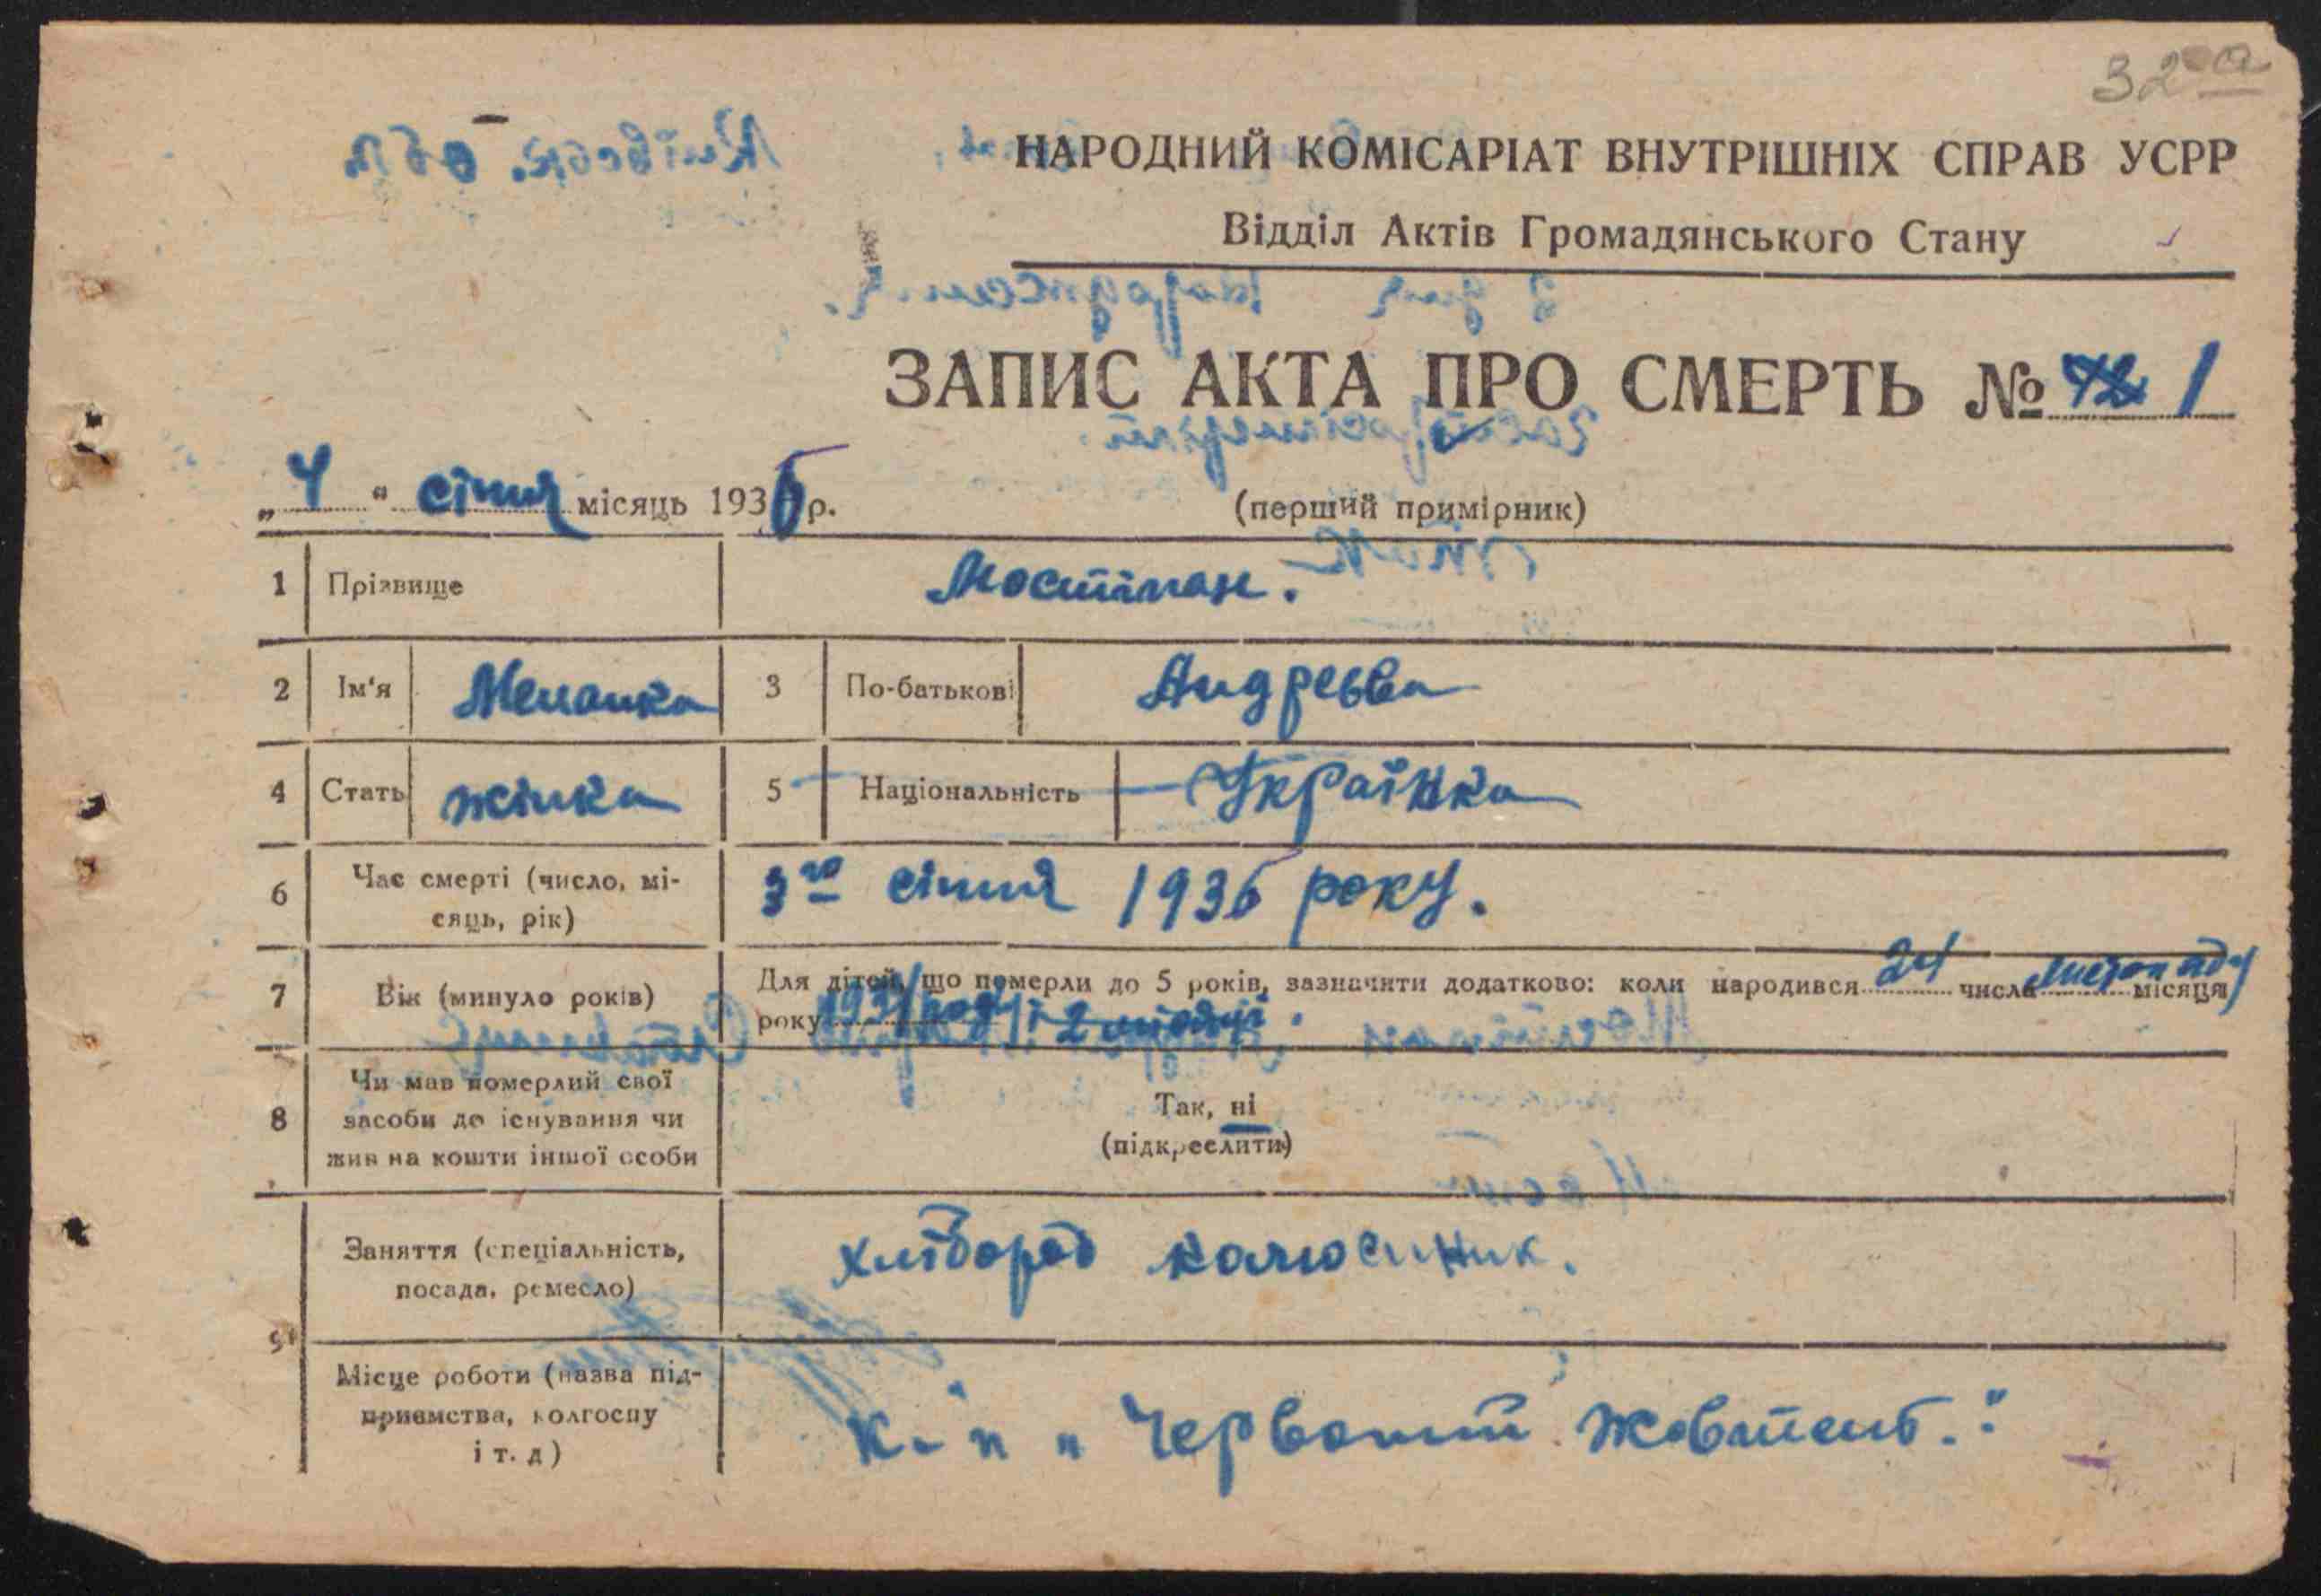 32 а
НАРОДНИЙ КОМІСАРІАТ ВНУТРІШНІХ СПРАВ УСРР
Відділ Актів Громадянського Стану
ЗАПИС АКТА ПРО СМЕРТЬ № 1
„4“ січня місяць 1936 р.
(перший примірник)
1 Прізвище Мостіпан.
2 Ім'я Меланка 3 По-батькові Андреєвна
4 Стать жінка 5 Національність Українка
6 Час смерті (число, мі-
сяць, рік) 3го січня 1936 року.
7 Вік (минуло років) Для дітей, що померли до 5 років, зазначити додатково: коли народився 24 числа листопаду місяця
року
8 Чи мав померлий свої
засоби до існування чи
жив на кошти іншої особи
Так, ні
(підкреслити)
9 Заняття (спеціальність,
посада, ремесло) хлібороб
Місце роботи (назва під-
приємства, колгоспу
і т. д) к-п „Червоний Жовтень."